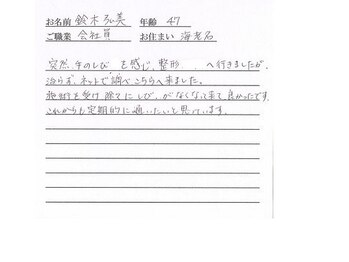 お名前 鈴木弘美 年齢 47
ご職業 会社員 お住まい 海老名
突然 手のしび を感じ、整形 へ行きましたが、
治らず、ネットで調べこちらへ来ました。
施術を受け 徐々にしび がなくなって来て良かったです。
これからも定期的に通いたいと思っています。